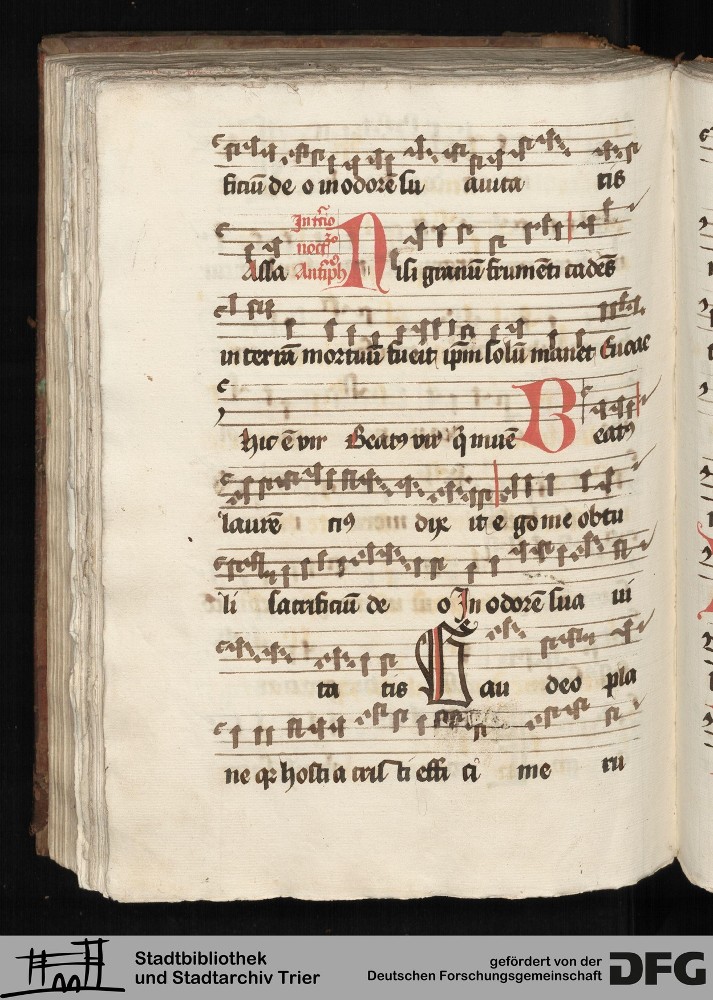 ficiū de o in odorē su auita tis
Assa In tcio noct̄o Antiph Nisi granū frumēti cadēs
in terrā mortuū fueit ip̄m solū manet Euoae
hic ē vir Beatꝯ vir q̄ inuē Beatꝯ
laurē tiꝯ dix it ego me obtu
li sacrificiū deo In odorē sua ui
ta tis Gau deo pla
ne qꝛ hostia cris ti effi ci me ru
Stadtbibliothek
und Stadtarchiv Trier
gefördert von der
Deutschen Forschungsgemeinschaft
DFG